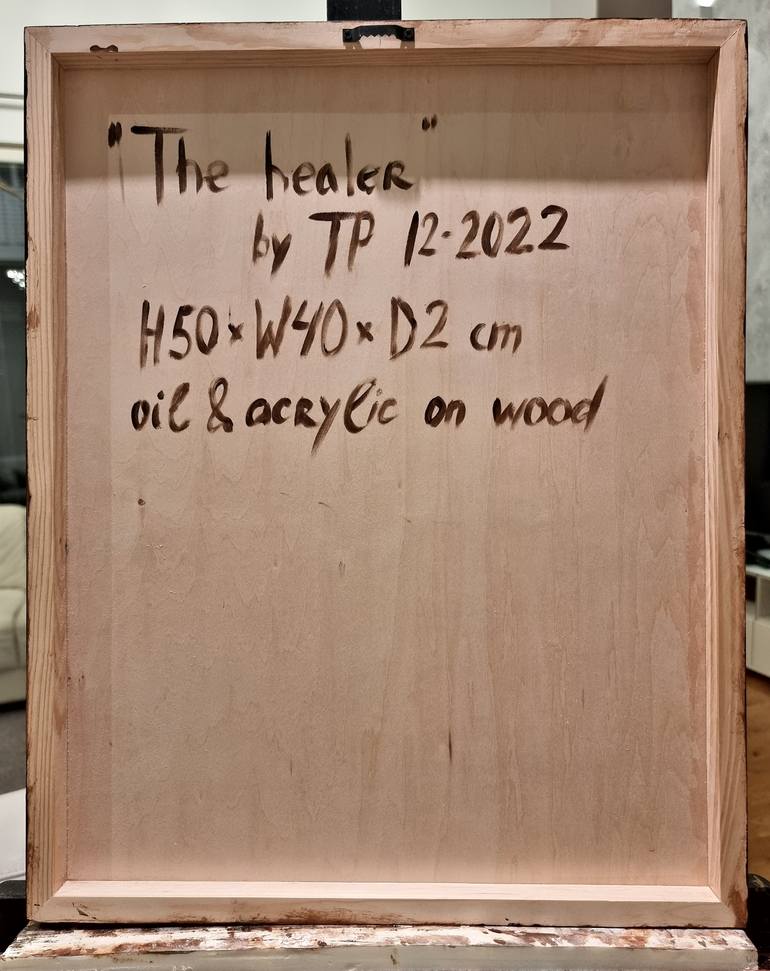 "The healer"
by TP 12-2022
H50 x W40 x D2 cm
oil & acrylic on wood